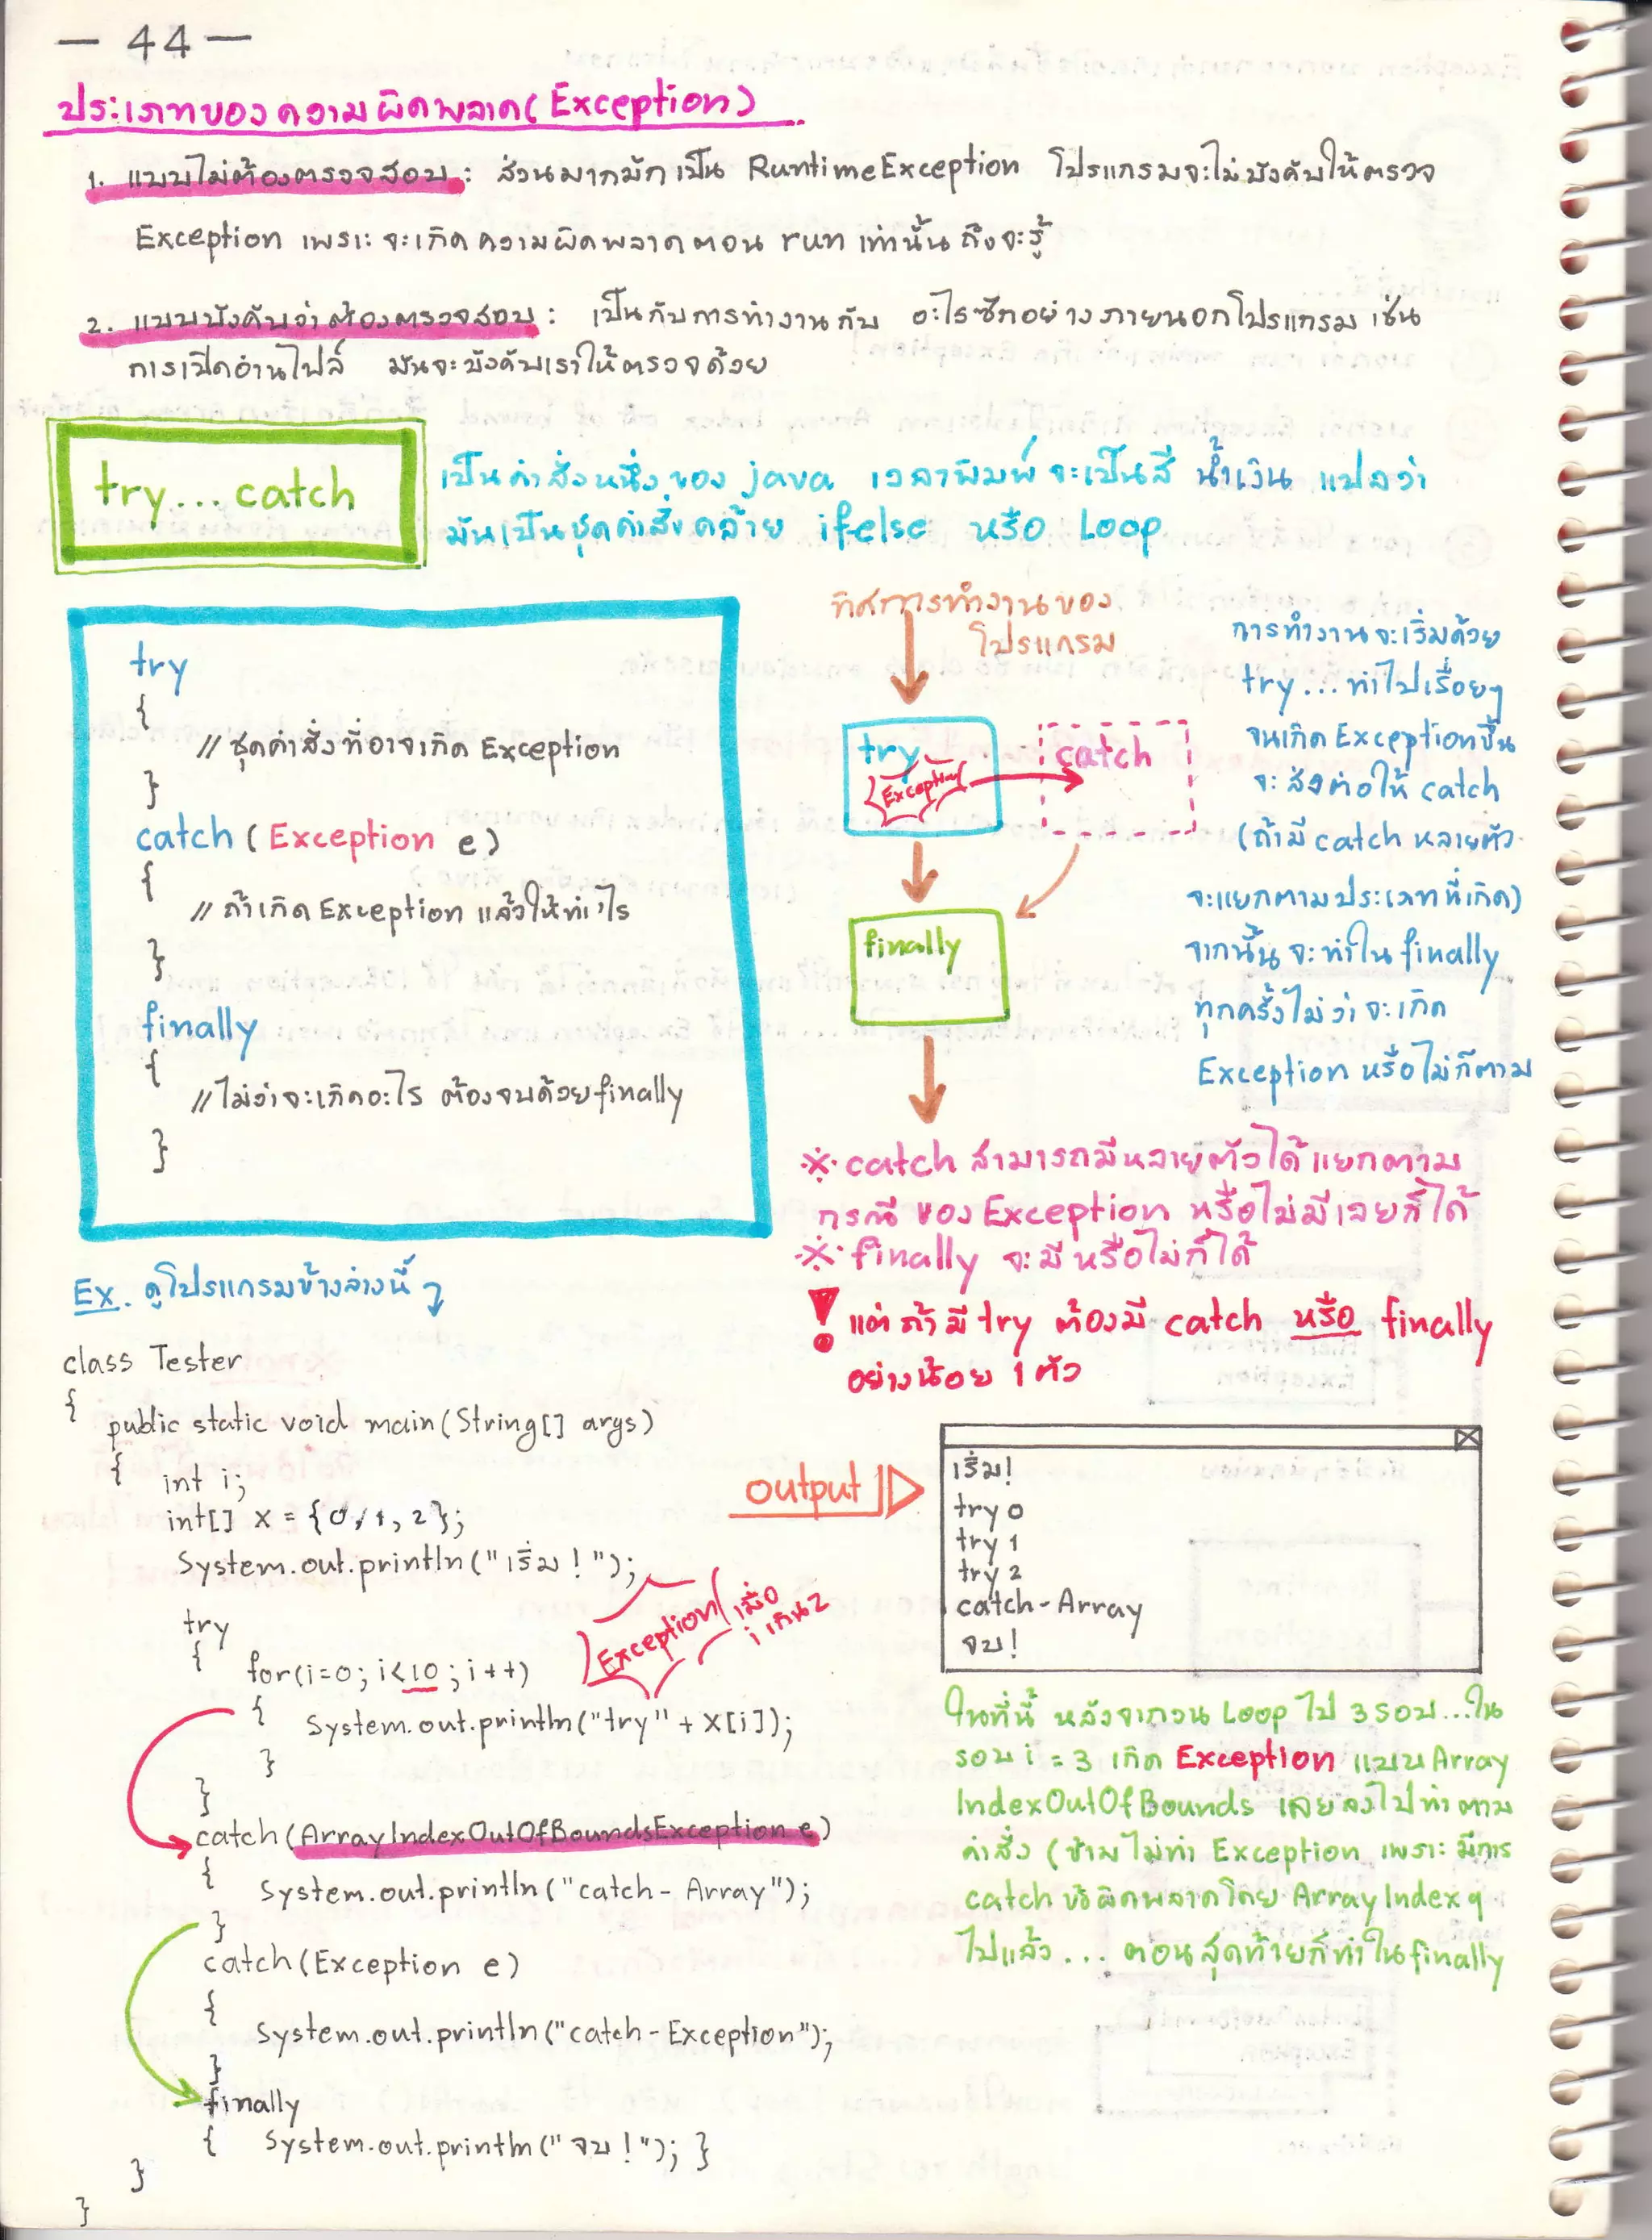 — 44 —
ประเภทของความผิดพลาด(Exception)
1. แบบไม่ต้องตรวจสอบ : ส่วนมากมักเป็น RuntimeException โปรแกรมจะไม่บังคับให้ตรวจ
Exception เพราะจะเกิดความผิดพลาดตอน run เท่านั้นถึงจะรู้
2. แบบบังคับว่าต้องตรวจสอบ : เป็นกับการทำงานกับ อะไรซักอย่างภายนอกโปรแกรม เช่น
การเปิดอ่านไฟล์ มันจะบังคับเราให้ตรวจด้วย
try...catch
เป็นคำสั่งหนึ่งของ java เวลาพิมพ์จะเป็นสี น้ำเงิน แปลว่า
มันเป็นชุดคำสั่งคล้าย ifelse หรือ Loop
try
{
// ชุดคำสั่งที่อาจเกิด Exception
}
catch (Exception e)
{
// ถ้าเกิด Exception แล้วให้ทำไร
}
finally
{
// ไม่ว่าจะเกิดอะไร ต้องจบด้วย finally
}
ทิศการทำงานของ
โปรแกรม
try
Exception
catch
finally
การทำงานจะเริ่มด้วย
try...ทำไปเรื่อยๆ
จนเกิด Exception ขึ้น
จะส่งต่อให้ catch
(ถ้ามี catch หลายตัว
จะแยกตามประเภทที่เกิด)
จากนั้นจะทำใน finally
ทุกครั้งไม่ว่าจะเกิด
Exception หรือไม่ก็ตาม
※ catch สามารถมีหลายตัวได้ แยกตาม
กรณี ของ Exception หรือไม่มีเลยก็ได้
※ finally จะมีหรือไม่ก็ได้
! แต่ถ้ามี try ต้องมี catch หรือ finally
อย่างน้อย 1 ตัว
Ex. ดูโปรแกรมข้างล่างนี้
class Tester
{
public static void main(String[] args)
{
int i;
int[] x = {0,1,2};
System.out.println("เริ่ม!");
try
{
for(i=0; i<10; i++)
{
System.out.println("try" + x[i]);
}
}
catch(ArrayIndexOutOfBoundsException e)
{
System.out.println("catch-Array");
}
catch(Exception e)
{
System.out.println("catch-Exception");
}
finally
{ System.out.println("จบ!"); }
}
}
Exception เมื่อ
i เกิน 2
output
เริ่ม!
try 0
try 1
try 2
catch-Array
จบ!
ในที่นี้ หลังจากวน Loop ไป 3 รอบ...ใน
รอบ i = 3 เกิด Exception แบบ Array
IndexOutOfBounds เลยลงไปทำตาม
คำสั่ง (ข้ามไม่ทำ Exception เพราะ มีการ
catch ข้อผิดพลาดโดย ArrayIndex ๆ
ไปแล้ว... ตอนสุดท้ายก็ทำใน finally